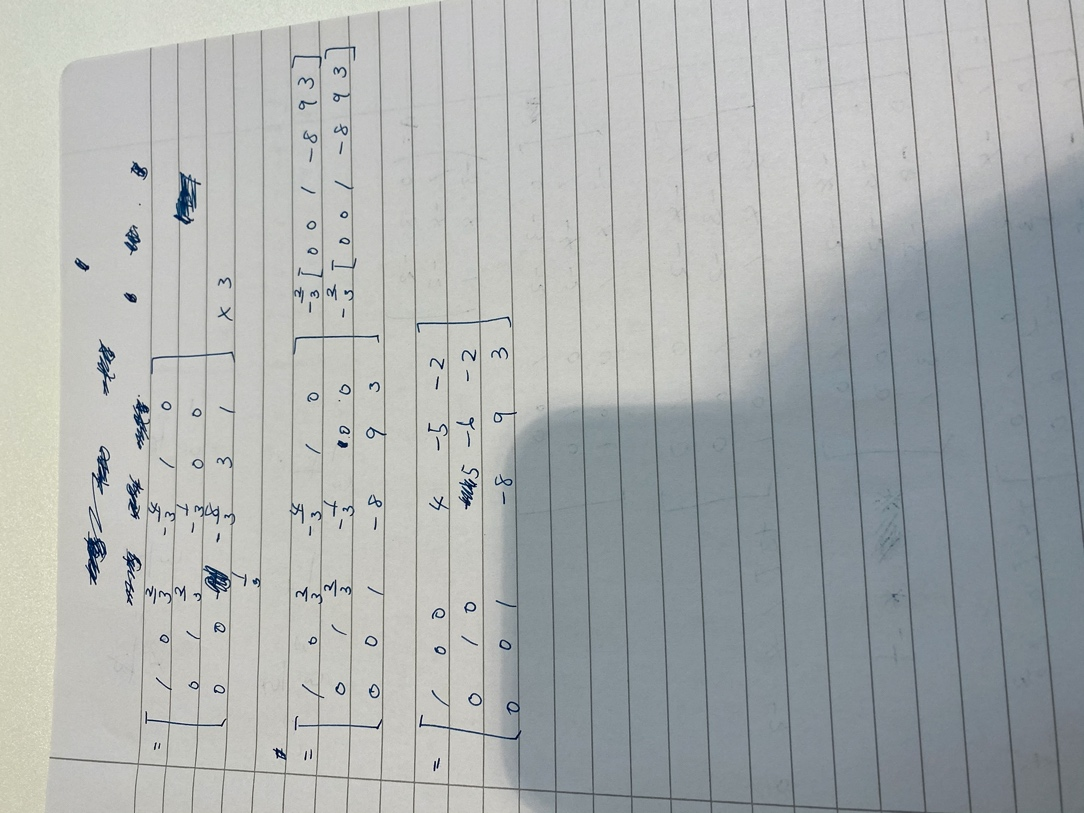 = [ 1 0 2/3 -4/3 1 0 ]
0 1 2/3 -1/3 0 0
0 0 1/3 -8/3 3 1 × 3
= [ 1 0 2/3 -4/3 1 0 ] -2/3 [0 0 1 -8 9 3]
0 1 2/3 -1/3 0 0 -2/3 [0 0 1 -8 9 3]
0 0 1 -8 9 3
= [ 1 0 0 4 -5 -2 ]
0 1 0 5 -6 -2
0 0 1 -8 9 3